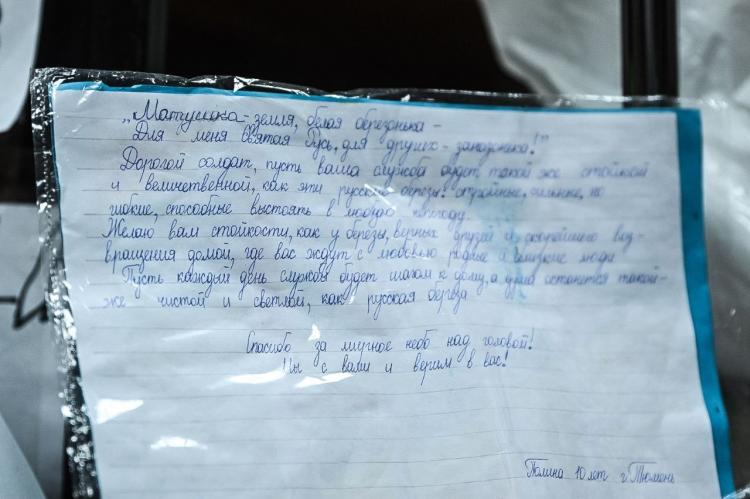 „Матушка-земля, белая березонька -
Для меня Святая Русь, для другого - занозонька!"
Дорогой солдат, пусть ваша служба будет такой же стойкой
и величественной, как эти русские березы: стройные, сильные, но
гибкие, способные выстоять в любую погоду.
Желаю вам стойкости, как у березы, верных друзей и скорейшего воз-
вращения домой, где вас ждут с любовью родные и близкие люди
Пусть каждый день службы будет шагом к дому, а душа останется такой-
же чистой и светлой, как русская береза
Спасибо за мирное небо над головой!
Мы с вами и верим в вас!
Полина 10 лет г. Тюмень